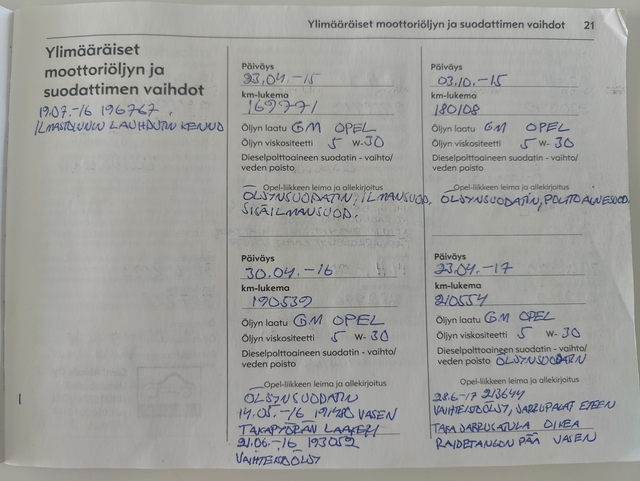 Ylimääräiset moottoriöljyn ja suodattimen vaihdot 21
Ylimääräiset
moottoriöljyn ja
suodattimen vaihdot
19.07.-16 196767.
ILMASTOINNIN LAUHDUTIN KENNO
Päiväys
23.04.-15
km-lukema
169771
Öljyn laatu GM OPEL
Öljyn viskositeetti 5 W-30
Dieselpolttoaineen suodatin - vaihto/
veden poisto
Opel-liikkeen leima ja allekirjoitus
ÖLJYNSUODATIN, ILMANSUOD.
SISÄILMANSUOD.
Päiväys
03.10.-15
km-lukema
180108
Öljyn laatu GM OPEL
Öljyn viskositeetti 5 W-30
Dieselpolttoaineen suodatin - vaihto/
veden poisto
Opel-liikkeen leima ja allekirjoitus
ÖLJYNSUODATIN, POLTTOAINESUOD.
Päiväys
30.04.-16
km-lukema
190539
Öljyn laatu GM OPEL
Öljyn viskositeetti 5 W-30
Dieselpolttoaineen suodatin - vaihto/
veden poisto
Opel-liikkeen leima ja allekirjoitus
ÖLJYNSUODATIN
14.05.-16 191480 VASEN
TAKAPYÖRÄN LAAKERI
21.06.-16 193052
VAIHTEISTOÖLJY
Päiväys
23.04.-17
km-lukema
210554
Öljyn laatu GM OPEL
Öljyn viskositeetti 5 W-30
Dieselpolttoaineen suodatin - vaihto/
veden poisto ÖLJYNSUODATIN
Opel-liikkeen leima ja allekirjoitus
28.6-17 213644
VAIHTEISTOÖLJY, JARRUPALAT ETEEN
TAKAJARRUSATULA OIKEA
RAIDETANGON PÄÄ VASEN